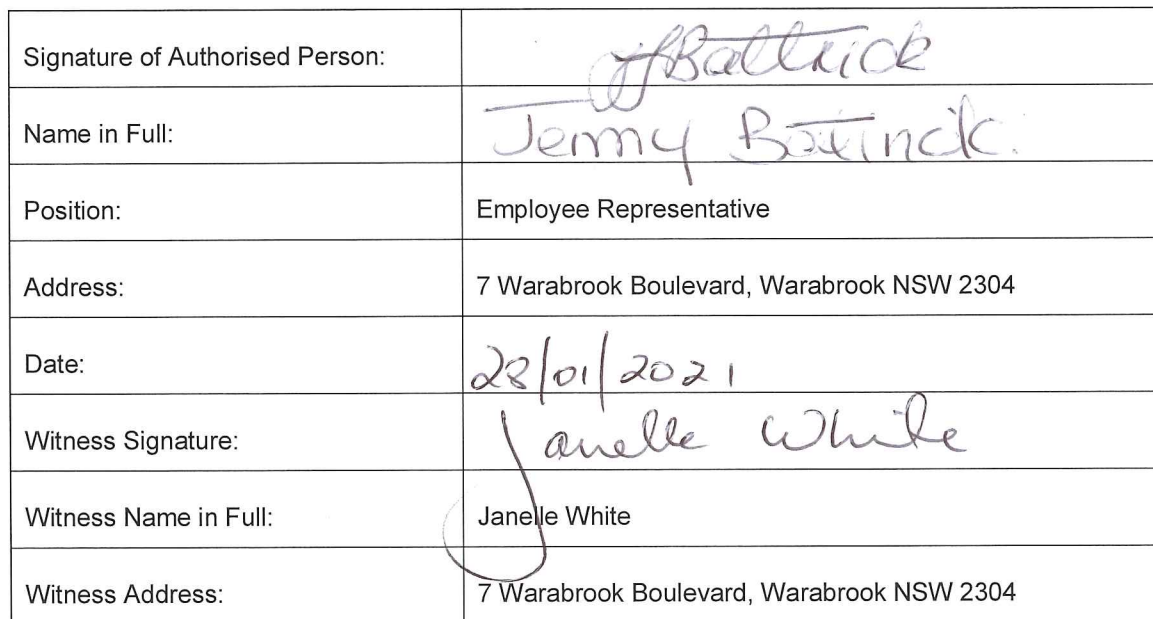 Signature of Authorised Person: JBattrick
Name in Full: Jenny Battrick.
Position: Employee Representative
Address: 7 Warabrook Boulevard, Warabrook NSW 2304
Date: 28/01/2021
Witness Signature: Janelle White
Witness Name in Full: Janelle White
Witness Address: 7 Warabrook Boulevard, Warabrook NSW 2304